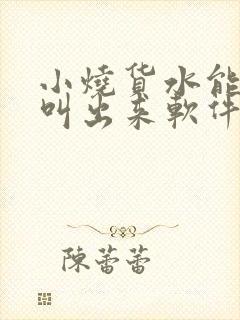 小燒货水能
叫出来軟件
陳蕾蕾